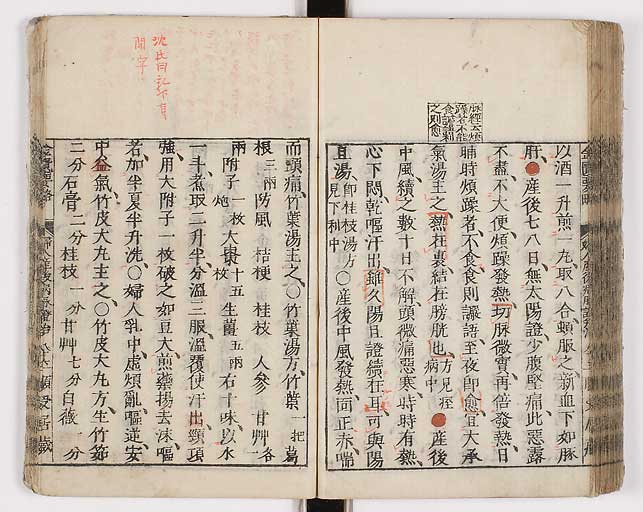 脉經云煩
躁者不能
食讝語利
之則愈
以酒一升煎一丸取八合頓服之新血下如豚
肝●產後七八日無太陽證少腹堅痛此惡露
不盡不大便煩躁發熱切脉微實再倍發熱日
晡時煩躁者不食食則讝語至夜卽愈宜大承
氣湯主之熱在裏結在膀胱也方見痙病中●產後
中風續之數十日不解頭微痛惡寒時時有熱
心下悶乾嘔汗出雖久陽旦證續在耳可與陽
旦湯卽桂枝湯方見下利中○產後中風發熱面正赤喘
而頭痛竹葉湯主之○竹葉湯方竹葉一把葛
根三兩防風 桔梗 桂枝 人參 甘艸各一
兩附子一枚炮大棗十五枚生薑五兩右十味以水
一斗煮取二升半分溫三服溫覆使汗出頸項
強用大附子一枚破之如豆大煎藥揚去沫嘔
者加半夏半升洗○婦人乳中虛煩亂嘔逆安
中益氣竹皮大丸主之○竹皮大丸方生竹茹
二分石膏二分桂枝一分甘艸七分白薇一分
金匱要略 婦人產後病脉證治